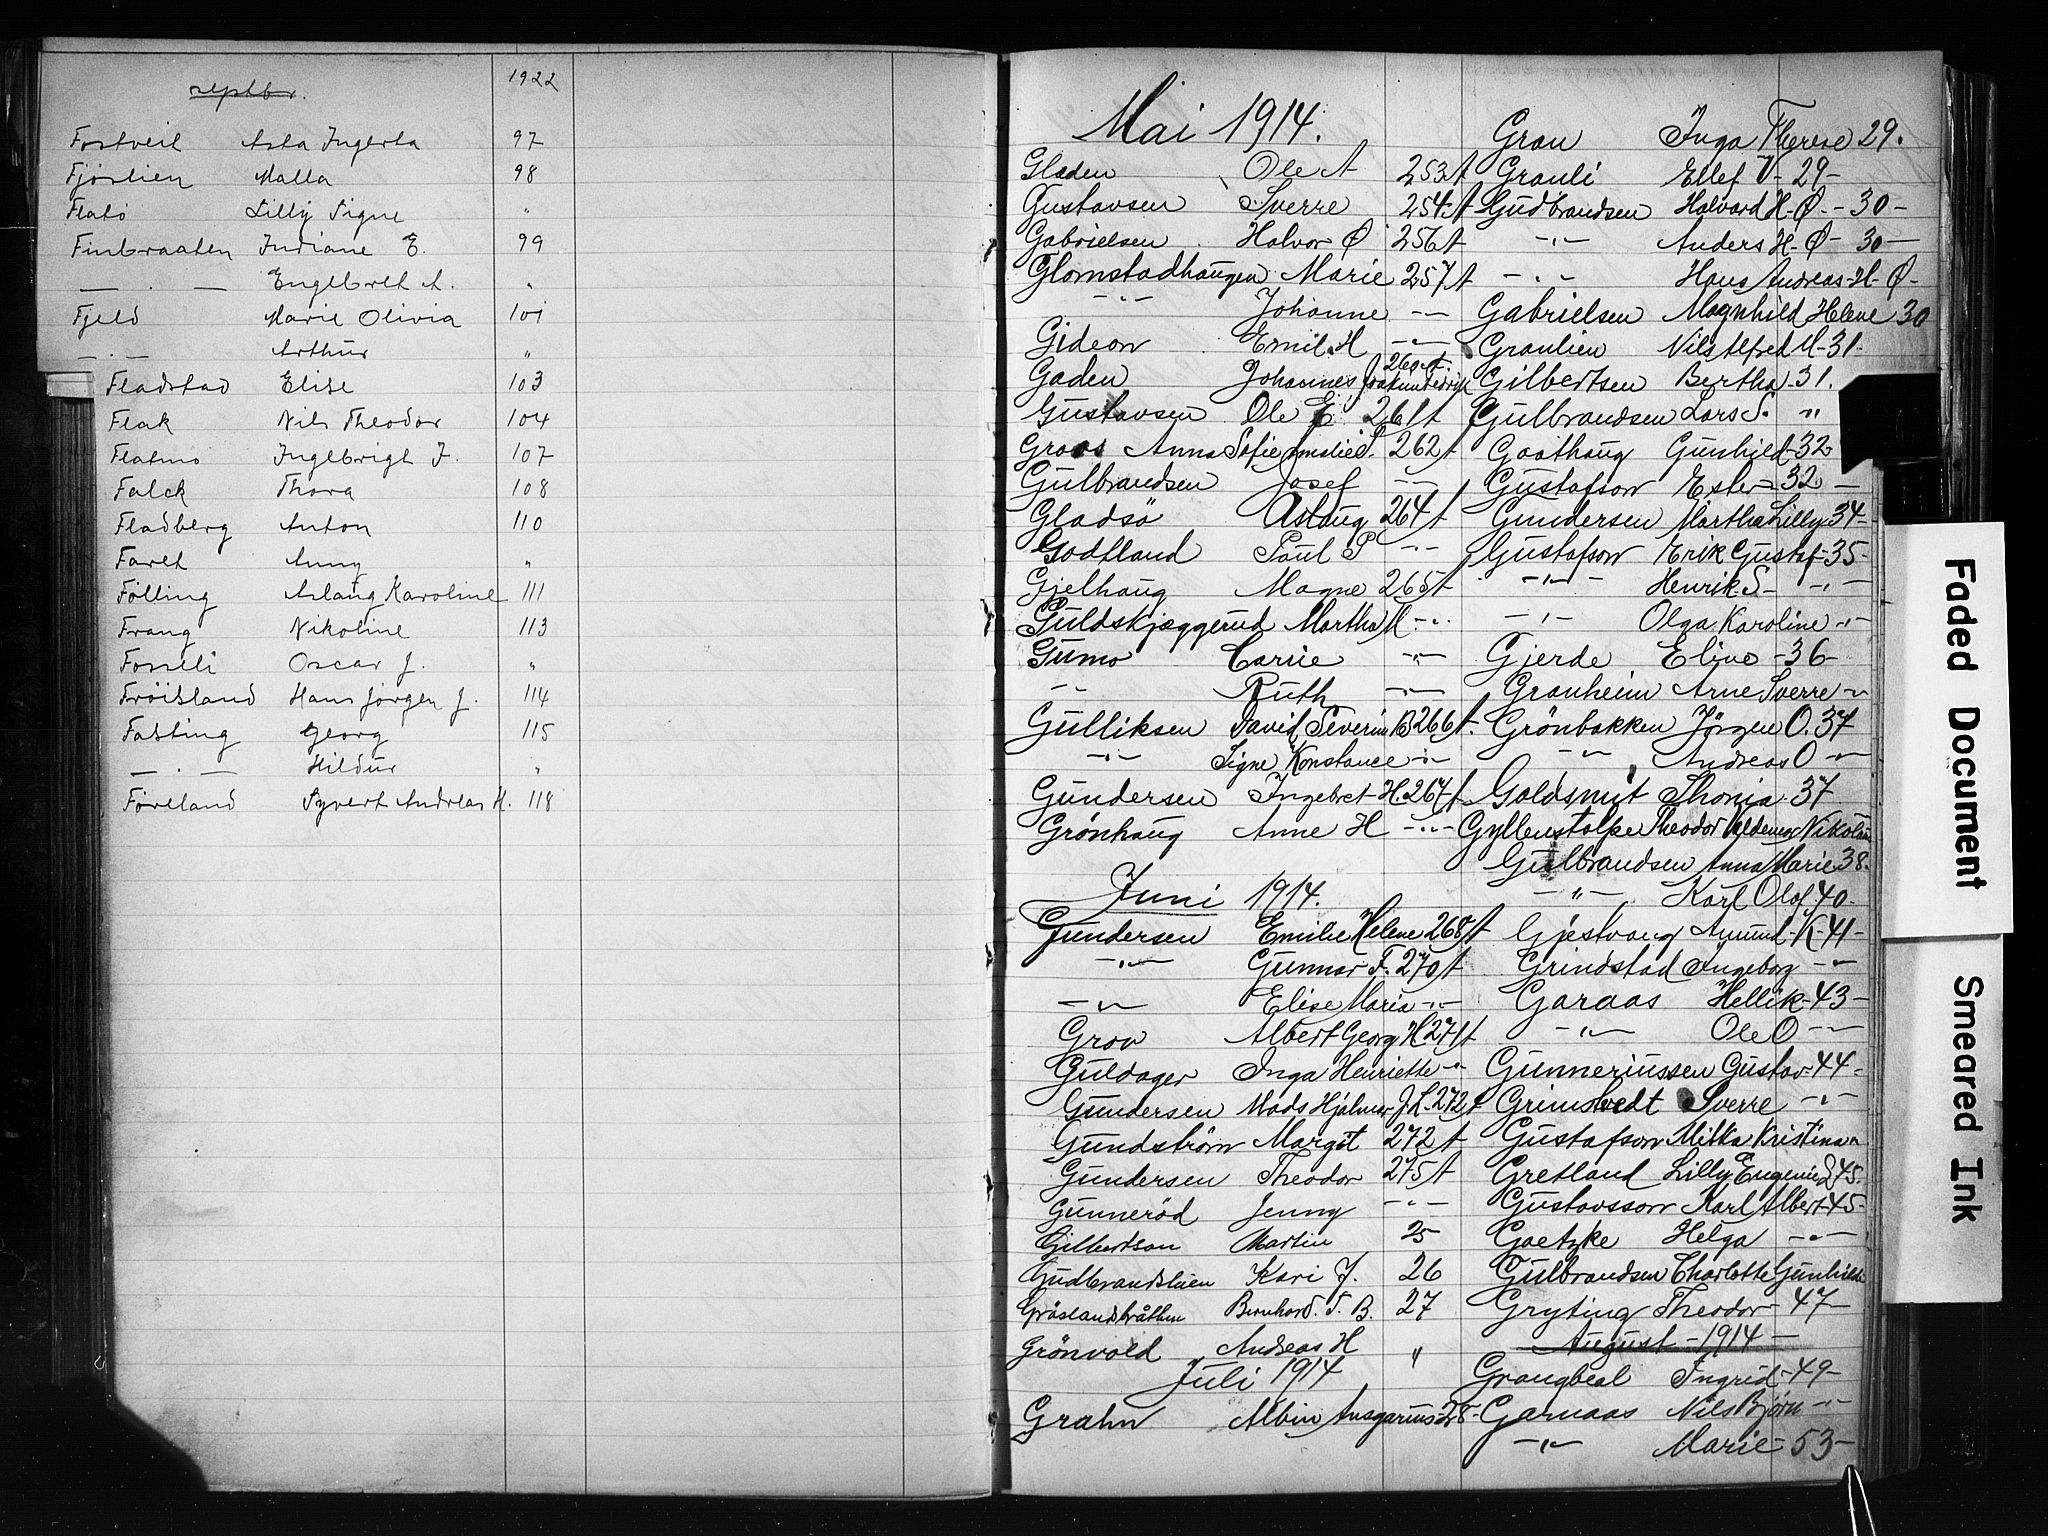 septbr.
1922
Fostveit Asta Ingerta 97
Fjöslien Malla 98
Flatö Lilly Signe "
Finbraaten Indiane E. 99
— . — Engelbret A. "
Fjeld Marie Olivia 101
— . — Arthur "
Fladstad Elise 103
Flak Nils Theodor 104
Flatmo Ingebrigt J. 107
Falck Thora 108
Fladberg Anton 110
Faret Anny "
Fölling Aslaug Karoline 111
Frang Nikoline 113
Fosseli Oscar J. "
Fröisland Hans Jörgen J. 114
Fasting Georg 115
— . — Hildur "
Föreland Syvert Andreas H. 118
Mai 1914.
Gladen Ole A 253 A
Gustavsen Sverre 254 A
Gabrielsen Halvor Ø 256 A
Glomstadhaugen Marie 257 A
-"- Johanne -"-
Gideon Emil H -"-
Gaden Johannes Joakim Fedrik 260 A.
Gustavsen Ole E 261 A
Groos Anna Sofie Amalie S. 262 A
Gulbrandsen Josef -"-
Gladsö Aslaug 264 A
Godtland Paul P -"-
Gjelhaug Magne 265 A
Guldskjæggerud Martha M. -"-
Gumo Carrie -"-
-"- Ruth -"-
Gulliksen David Severin B 266 A.
-"- Signe Konstance -"-
Gundersen Ingebret H. 267 A
Grönhaug Anne H -"-
Juni 1914.
Gundersen Emilie Helene 268 A
-"- Gunnar F. 270 A
-"- Elise Maria -"-
Grov Albert Georg H 271 A
Guldager Inga Henriette -"-
Gundersen Mads Hjalmar J. L. 272 A
Gundström Margit 272 A
Gundersen Theodor 275 A
Gunneröd Jenny -"-
Gilbertson Martin 25
Gudbrandslien Kari J. 26
Gröslandbråthen Bernhard. T. B. 27
Grönvold Andreas H "
Juli 1914
Grahn Albin Ansgarius -28-
Gran Inga Therese 29.
Granli Ellef V - 29 -
Gudbrandsen Halvard H - Ø - 30 -
-"- Anders H - Ø - 30 -
-"- Hans Andreas H - Ø -
Gabrielsen Magnhild Helene 30
Graulien Nils Alfred M - 31 -
Gilbertsen Bertha - 31.
Gulbrandsen Lars S. "
Gaathaug Gunhild - 32
Gustafson Ester - 32 -
Gundersen Martha Lilly - 34 -
Gustafson Erik Gustaf - 35 -
-"- Henrik S - -"-
-"- Olga Karoline -"-
Gjerde Eline - 36 -
Granheim Arne Sverre -"-
Grönbakken Jörgen O. 37
-"- Andreas O -"-
Goldsmit Thonia 37
Gyllenstolpe Theodor Valdemar Nikolaus
Gulbrandsen Anna Marie 38.
-"- Karl Olaf 40 -
Gjestvang Amund - K - 41 -
Grindstad Ingeborg -"-
Garaas Hellik - 43 -
-"- Ole O -"-
Gunneriussen Gustav - 44 -
Grimstvedt Sverre -"-
Gustafson Milka Kristina "
Gretland Lilly Eugenie S 45 -
Gustavsson Karl Albert - 45 -
Goetzke Helga -"-
Gulbrandsen Charlotte Gunhilde
Gryting Theodor - 47 -
August - 1914 -
Grangbeal Ingrid - 49 -
Garnaas Nils Bjørn -"-
-"- Marie - 53 -
Faded Document
Smeared Ink